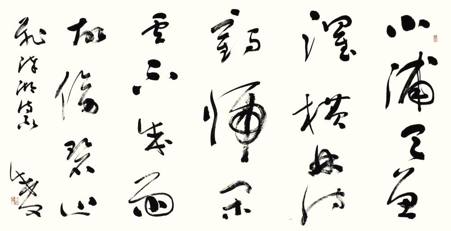 小浦聞魚
躍橫林待
鶴歸閒
雲不成雨
故傍碧山
飛 陸游詩